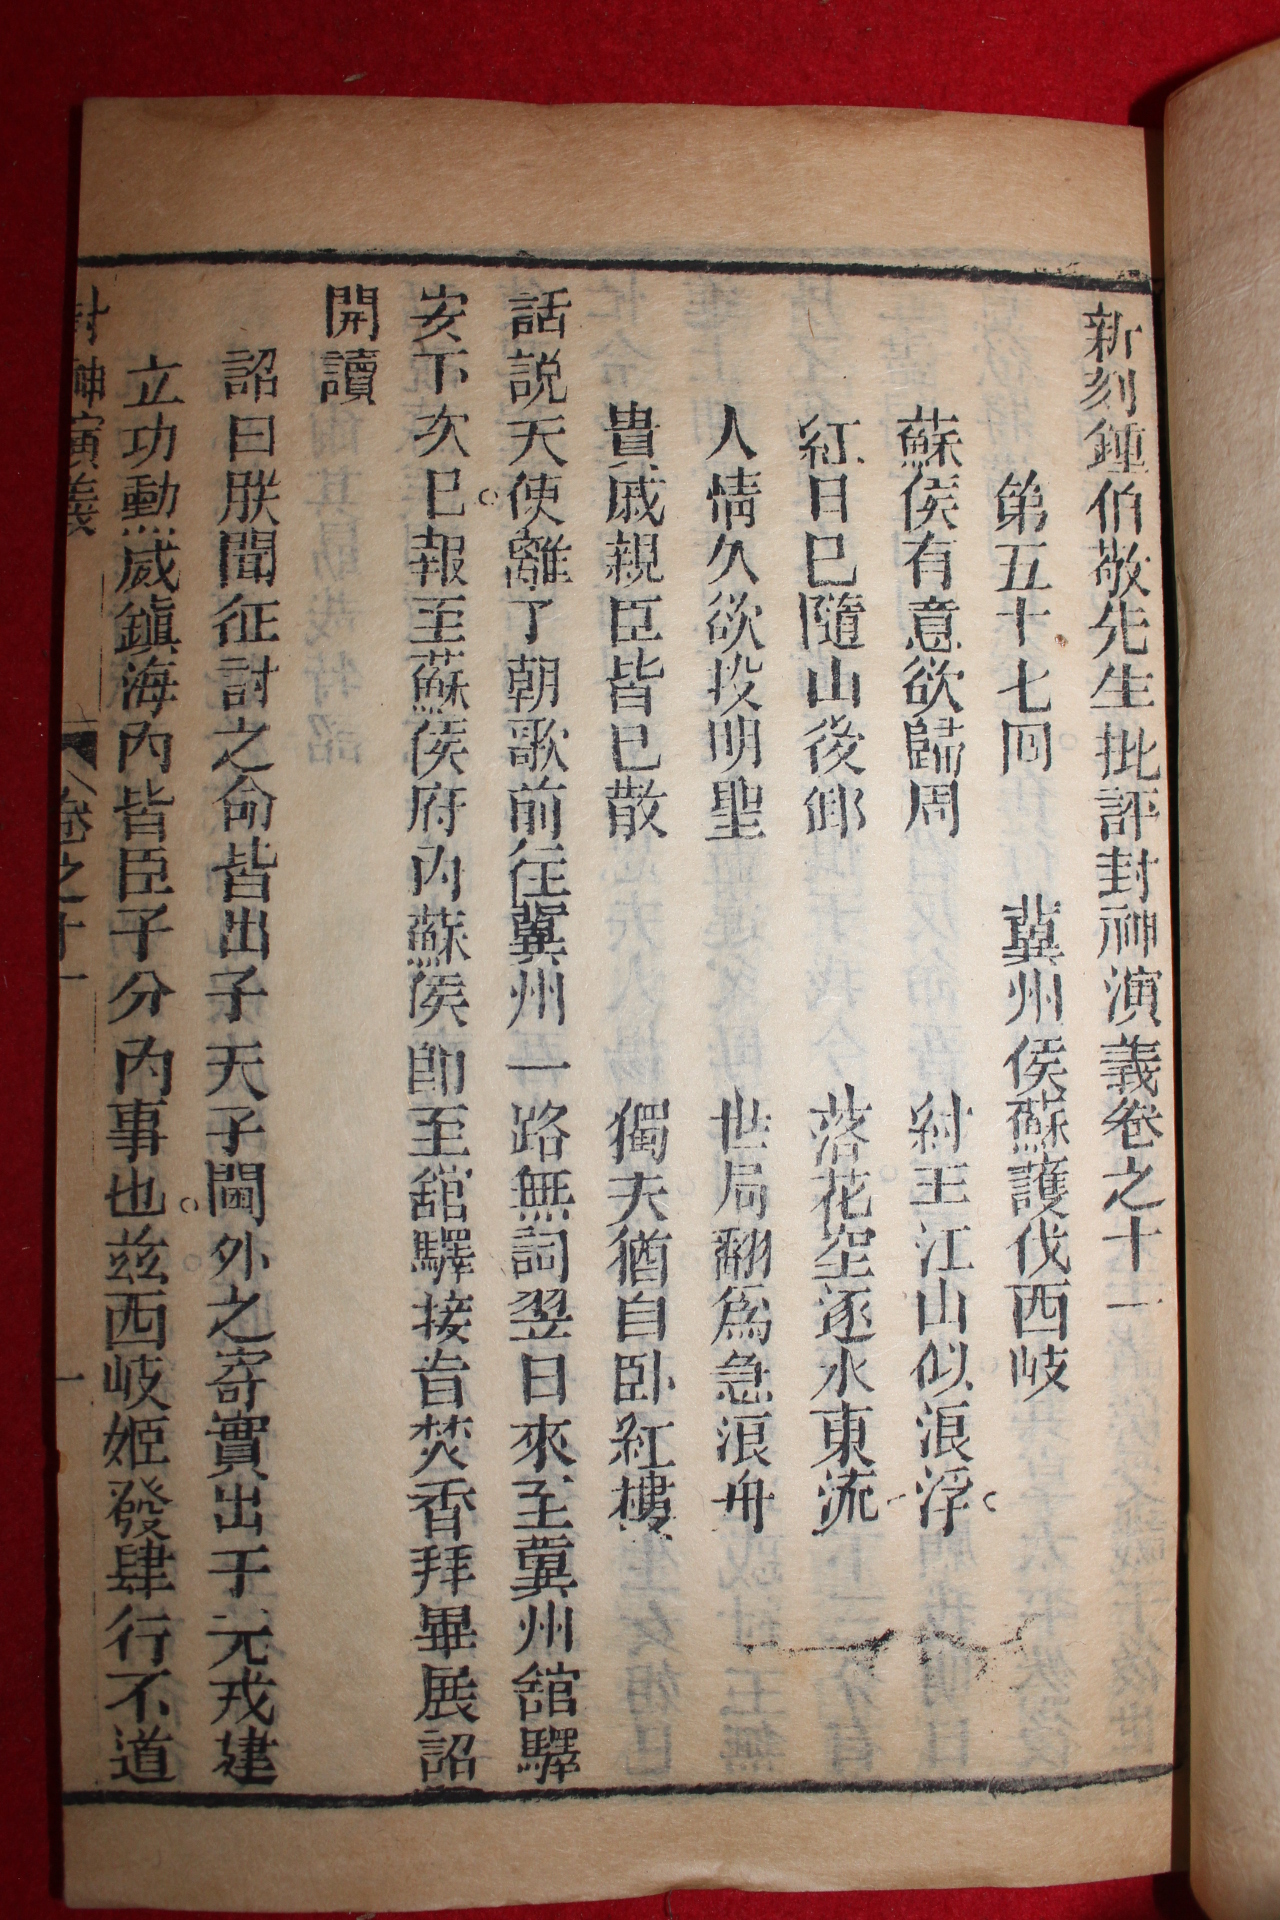 新刻鍾伯敬先生批評封神演義卷之十一
第五十七回 冀州侯蘇護伐西岐
蘇侯有意欲歸周 紂王江山似浪浮
紅日已隨山後卸 落花空逐水東流
人情久欲投明聖 世局翻爲急浪舟
貴戚親臣皆已散 獨夫猶自卧紅樓
話説天使離了朝歌前往冀州一路無詞翌日來至冀州舘驛
安下次已報至蘇侯府内蘇侯即至舘驛接旨焚香拜畢展詔
開讀
詔曰朕聞征討之命皆出于天子閫外之寄實出于元戎建
立功勳威鎮海内皆臣子分内事也兹西岐姬發肆行不道
封神演義 卷之十一 一